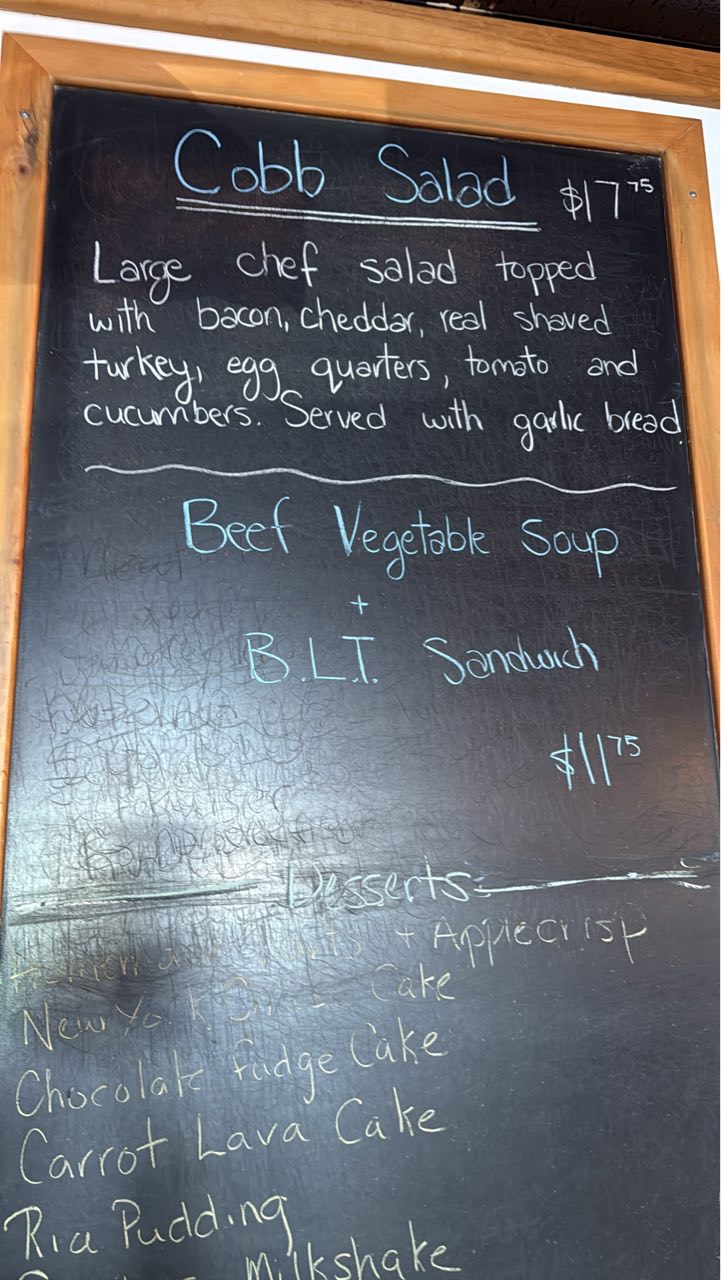 Cobb Salad $17 75
Large chef salad topped
with bacon, cheddar, real shaved
turkey, egg quarters, tomato and
cucumbers. Served with garlic bread.
Beef Vegetable Soup
+
B.L.T. Sandwich
$11 75
Desserts
+ Applecrisp
New York Cake
Chocolate Fudge Cake
Carrot Lava Cake
Ria Pudding
Milkshake